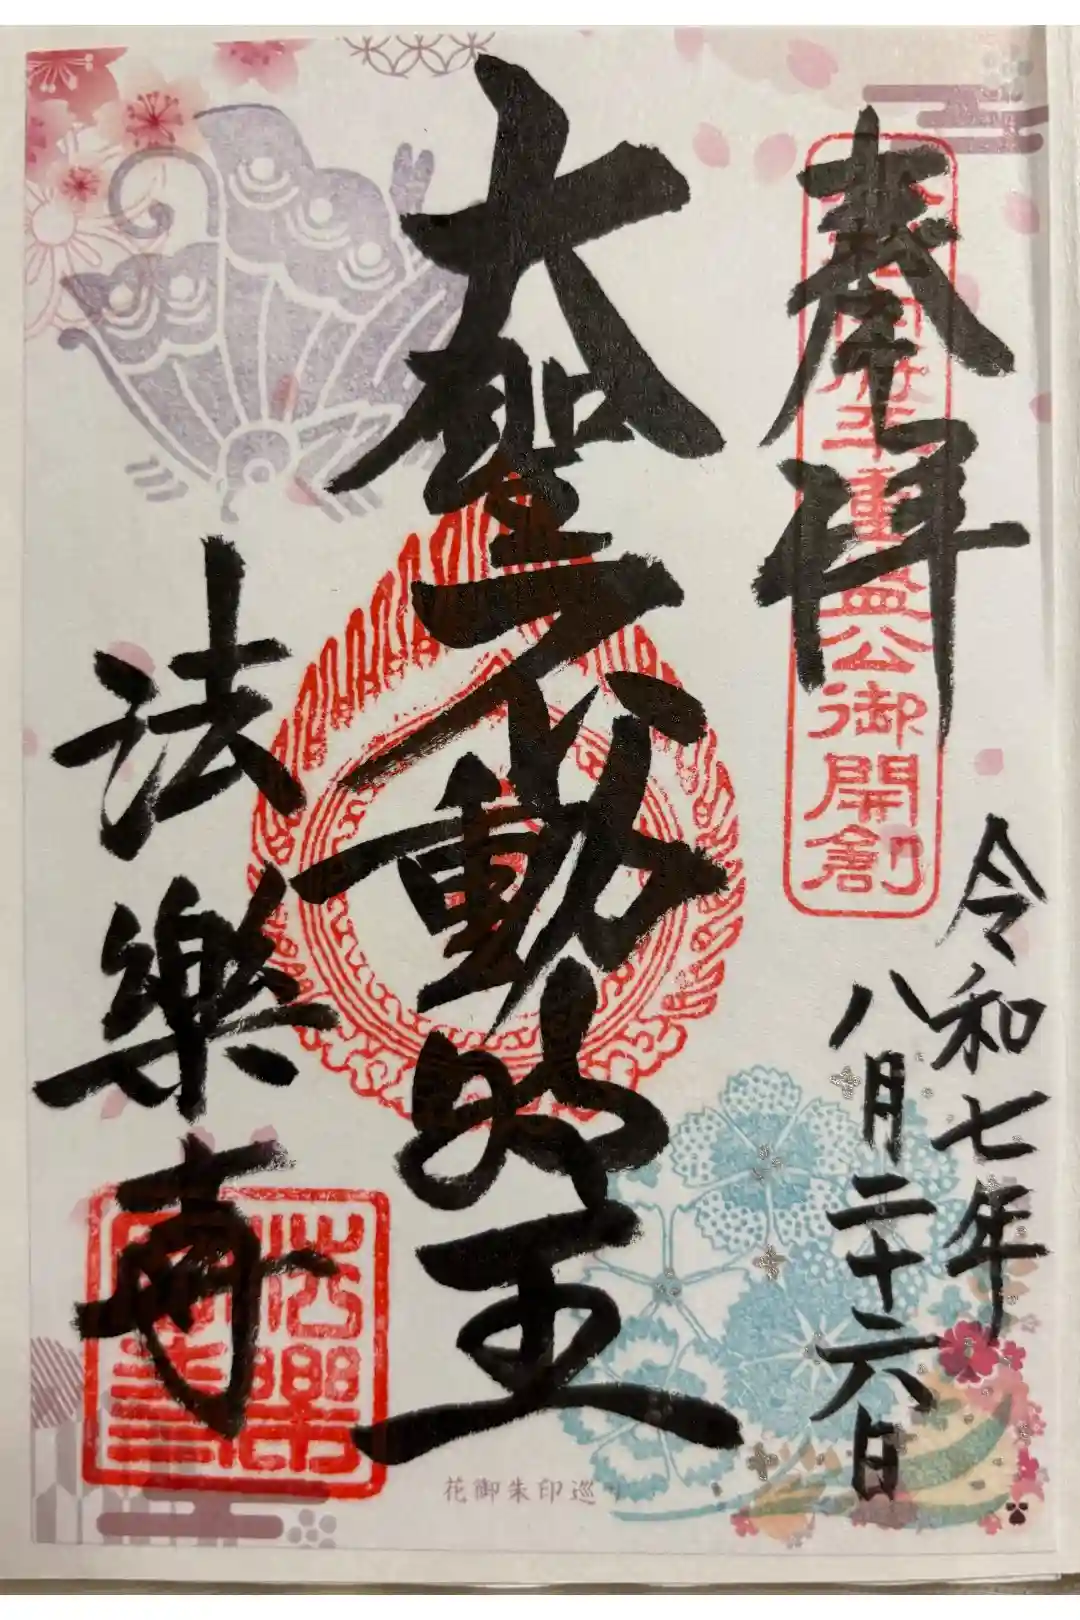 奉拝
小松内府平重盛公御開創
令和七年
八月二十六日
大聖不動明王
法樂寺
花御朱印巡り